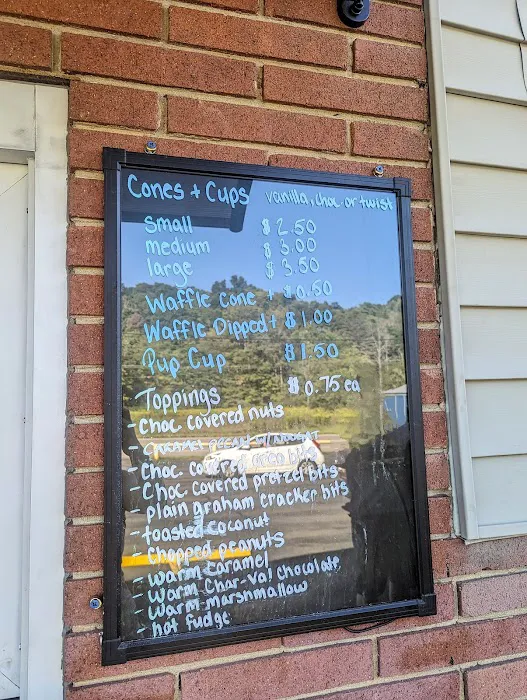 Cones + Cups vanilla, choc. or twist
Small $2.50
medium $3.00
large $3.50
Waffle cone + $0.50
Waffle Dipped + $1.00
Pup Cup $1.50
Toppings $0.75 ea
- choc covered nuts
- w/ NOUGAT
- Choc covered oreo bits
- Choc covered pretzel bits
- plain graham cracker bits
- toasted coconut
- chopped peanuts
- warm caramel
- warm Char-Val chocolate
- warm marshmallow
- hot fudge